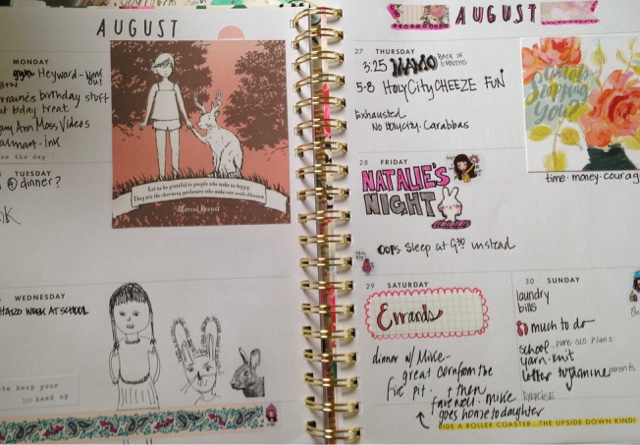 AUGUST
MONDAY
Heyward
birthday stuff
bday treat
Ann Moss Videos
ink
the day
TUESDAY
dinner?
Let us be grateful to people who make us happy,
They are the charming gardeners who make our souls blossom
Marcel Proust
WEDNESDAY
HARD WEEK AT SCHOOL
keep your
>>> head up
AUGUST
27 THURSDAY
3:25 MAMO BACK OF
5-8 HOLYCITY CHEEZE FUN
Exhausted
No Holycity. Carabbas
what's
stopping
you?
time·money·courag
28 FRIDAY
NATALIE'S
NIGHT
oops sleep at 9:30 instead
29 SATURDAY
Errands
dinner w/ Mike-
great corn from the
fire pit. + then
farewell. mike
goes home to daughter
30 SUNDAY
laundry
bills
much to do
school
yarn-knit
letter to Jasmine parents
RIDE A ROLLER COASTER...THE UPSIDE DOWN KIND!